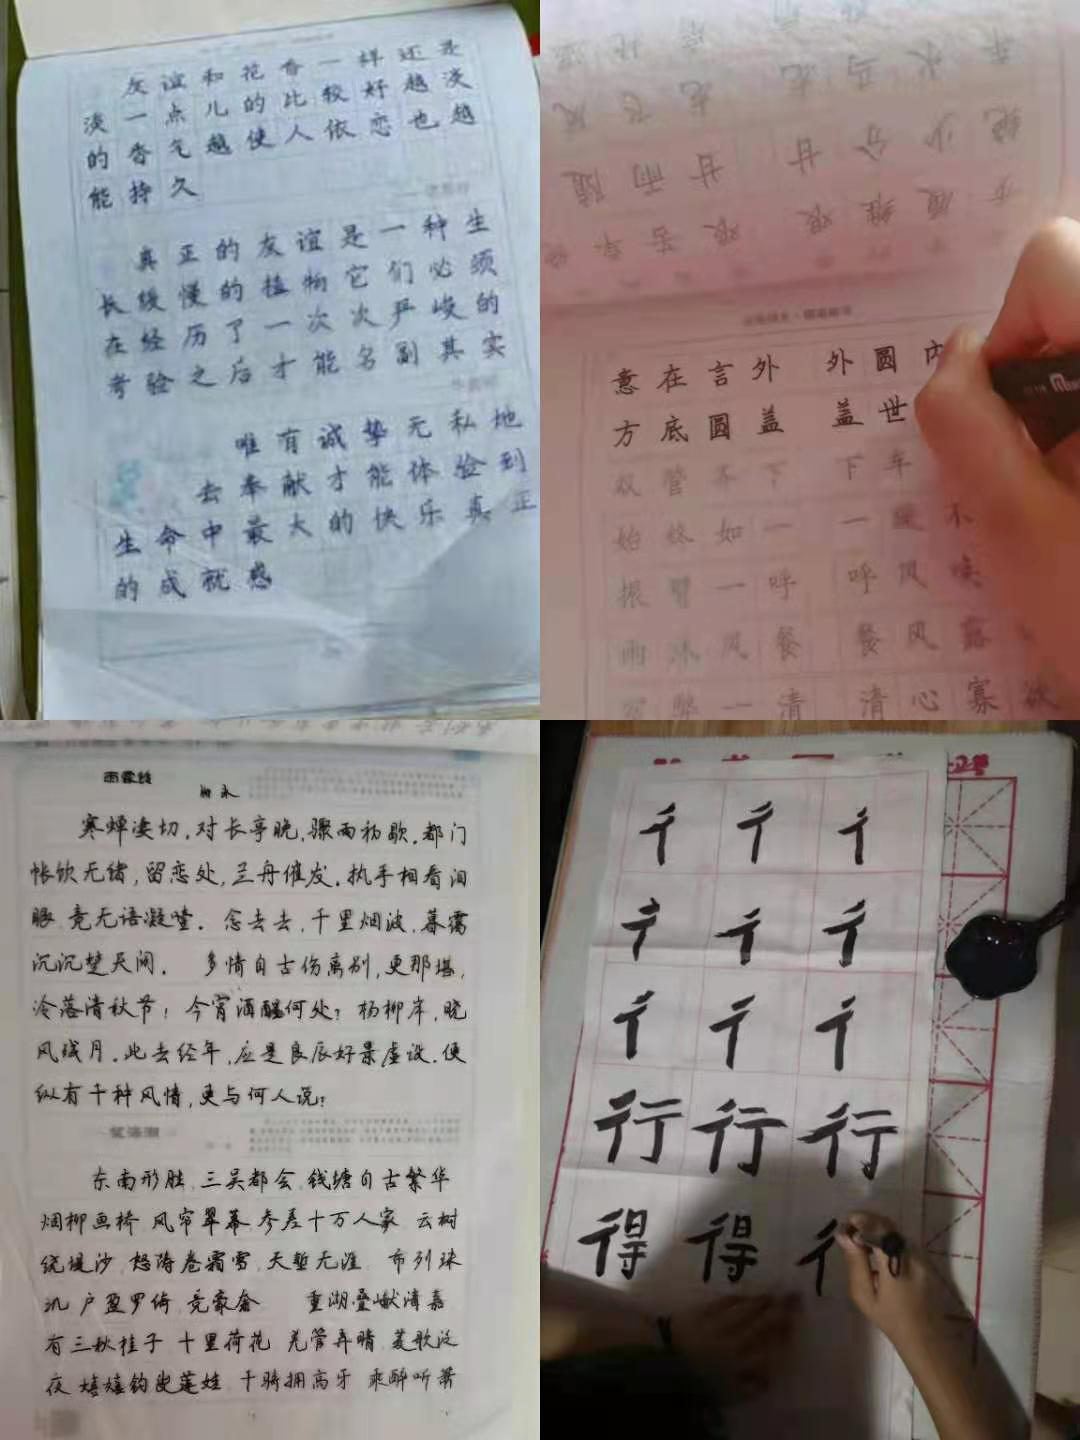 友谊和花香一样还是
淡一点儿的比较好越淡
的香气越使人依恋也越
能持久
真正的友谊是一种生
长缓慢的植物它们必须
在经历了一次次严峻的
考验之后才能名副其实
唯有诚挚无私地
去奉献才能体验到
生命中最大的快乐真正
的成就感
意在言外 外圆内
方底圆盖 盖世
双管齐下 下车
始终如一 一蹶不
振臂一呼 呼风唤
雨沐风餐 餐风露
一清 清心寡欲
雨霖铃
柳永
寒蝉凄切,对长亭晚,骤雨初歇。都门
帐饮无绪,留恋处,兰舟催发。执手相看泪
眼,竟无语凝噎。念去去,千里烟波,暮霭
沉沉楚天阔。 多情自古伤离别,更那堪,
冷落清秋节!今宵酒醒何处?杨柳岸,晓
风残月。此去经年,应是良辰好景虚设。便
纵有千种风情,更与何人说?
望海潮
东南形胜,三吴都会,钱塘自古繁华
烟柳画桥 风帘翠幕 参差十万人家 云树
绕堤沙,怒涛卷霜雪,天堑无涯 市列珠
玑 户盈罗绮 竞豪奢 重湖叠巘清嘉
有三秋桂子 十里荷花 羌管弄晴 菱歌泛
夜 嬉嬉钓叟莲娃 千骑拥高牙 乘醉听箫
彳彳彳
彳彳彳
彳彳彳
行行行
得得彳